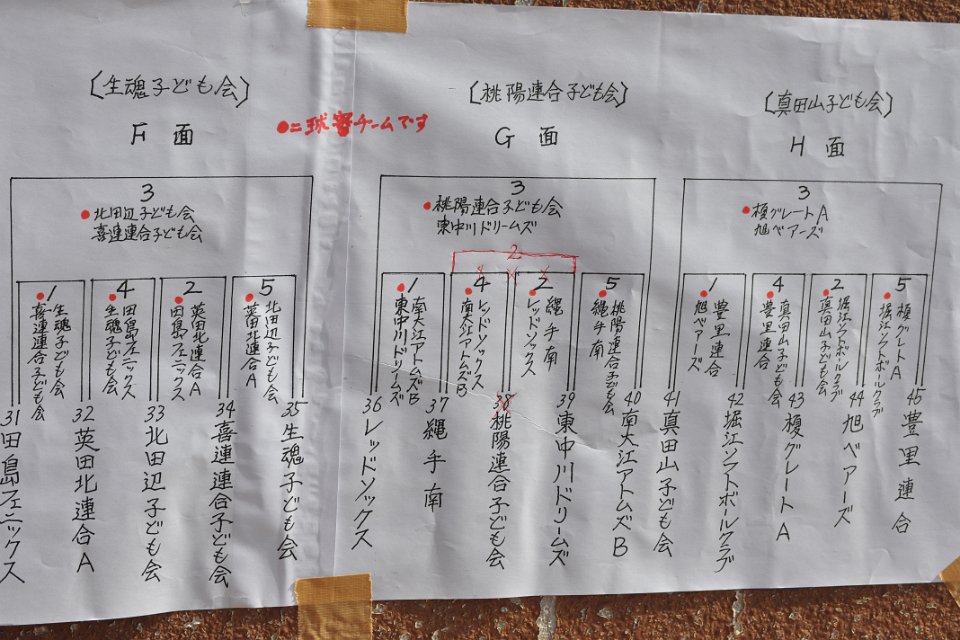 (生魂子ども会)
F 面
●=球審チームです
3
●北田辺子ども会
喜連連合子ども会
1
生魂子ども会
●喜連連合子ども会
4
田島フェニックス
●生魂子ども会
2
英田北連合A
●田島フェニックス
5
北田辺子ども会
●英田北連合A
31 田島フェニックス
32 英田北連合A
33 北田辺子ども会
34 喜連連合子ども会
35 生魂子ども会
(桃陽連合子ども会)
G 面
3
●桃陽連合子ども会
東中川ドリームズ
2
1
南大江アトムズB
●東中川ドリームズ
4
レッドソックス
●南大江アトムズB
2
縄手南
●レッドソックス
5
桃陽連合子ども会
●縄手南
36 レッドソックス
37 縄手南
38 桃陽連合子ども会
39 東中川ドリームズ
40 南大江アトムズB
(真田山子ども会)
H 面
3
●榎グレートA
旭ベアーズ
1
豊里連合
●旭ベアーズ
4
真田山子ども会
●豊里連合
2
堀江ソフトボールクラブ
●真田山子ども会
5
榎グレートA
●堀江ソフトボールクラブ
41 真田山子ども会
42 堀江ソフトボールクラブ
43 榎グレートA
44 旭ベアーズ
45 豊里連合